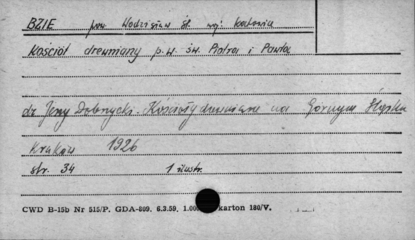 BZIE pow. Wodzisław Śl. woj. Katowice
Kościół drewniany p.w. św. Piotra i Pawła
dr. Jerzy Dobrzycki. Kościoły drewniane na Górnym Śląsku
Kraków 1926
str. 34 1 ilustr.
CWD B-15b Nr 515/P. GDA-809. 6.3.59. 1.00 karton 180/V.